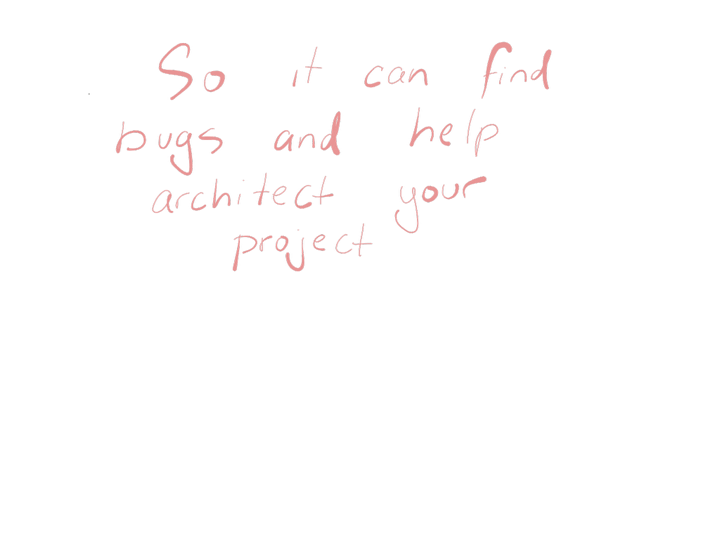 So it can find
bugs and help
architect your
project